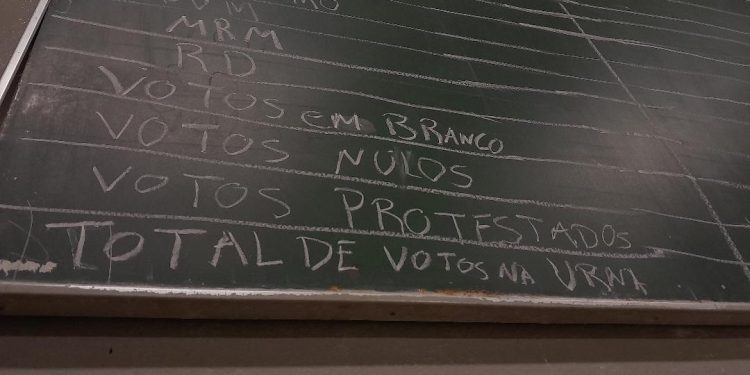 MRM
RD
VOTOS EM BRANCO
VOTOS NULOS
VOTOS PROTESTADOS
TOTAL DE VOTOS NA URNA